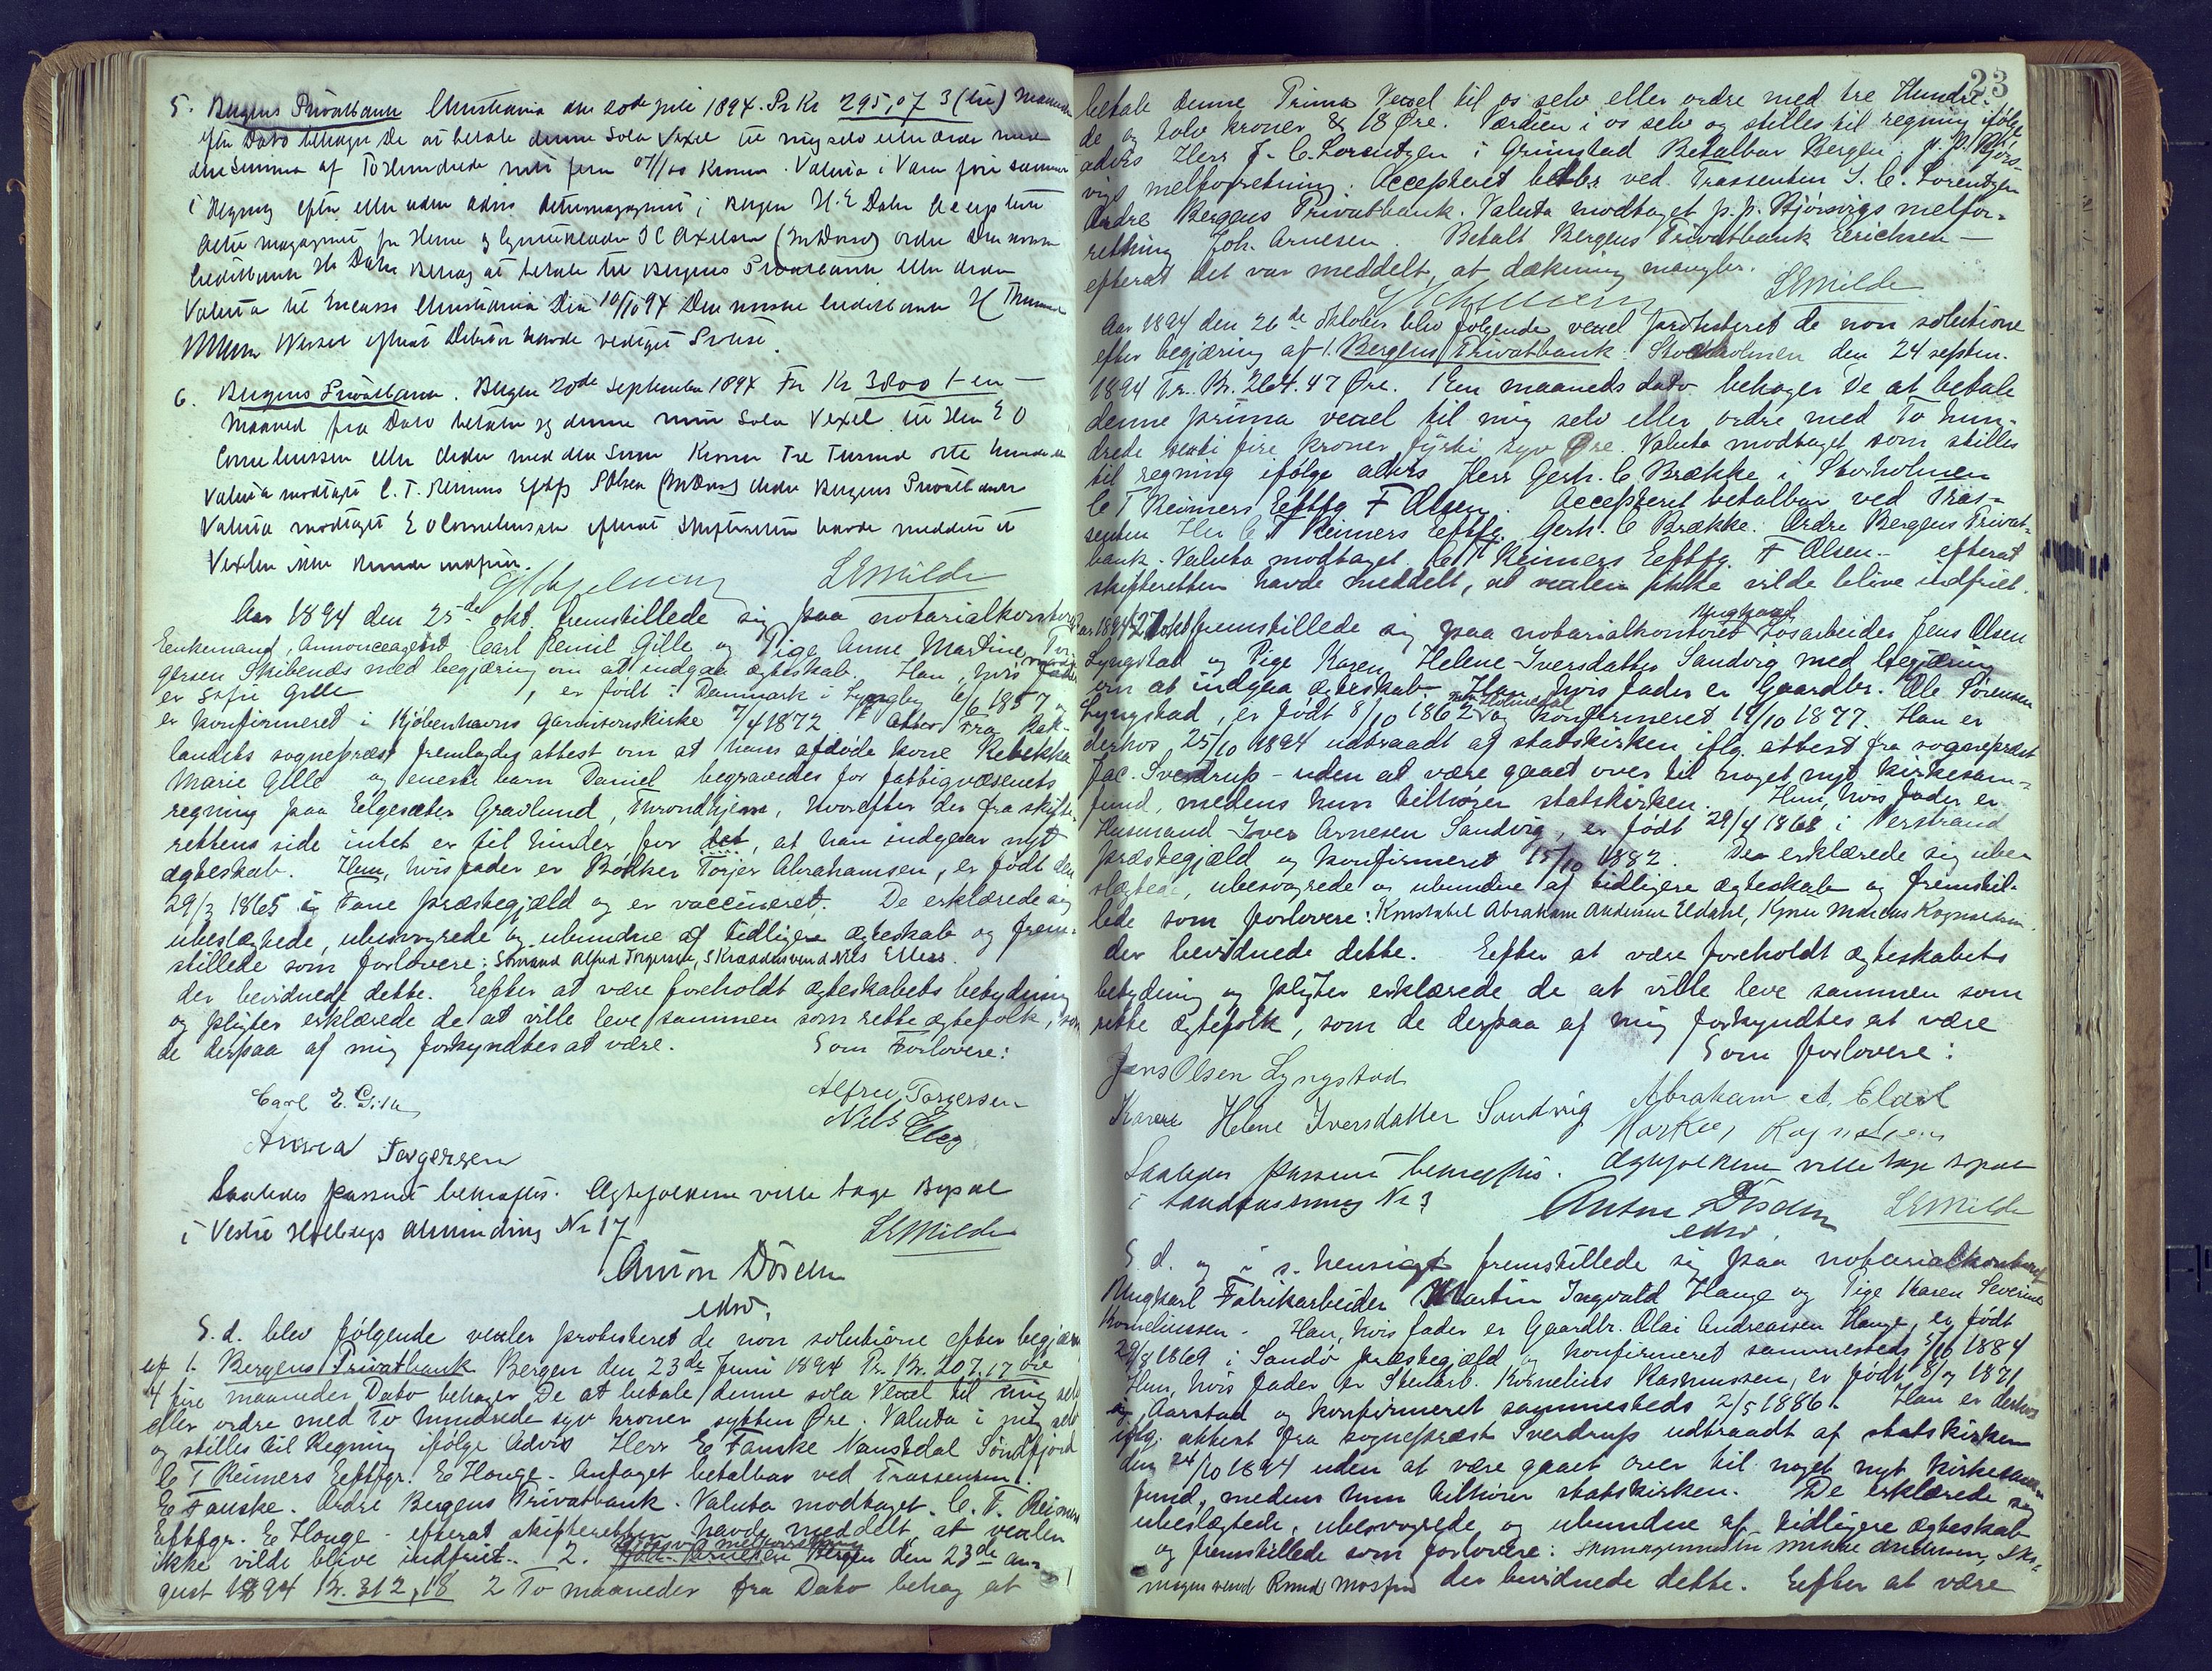 5. Bergens Privatbank Christiania den 20de juli 1894. Pr Kr 295,07 3 (tre) Maaneder
efter Dato behager De at betale denne Sola Vexel til mig selv eller ordre med
den Summa af To Hundrede niti fem 07/100 Kroner. Valuta i Varer føres sammen
i Regning efter eller uden advis Acturmagazinet i Bergen H. E Dahn Accepteret
for Herre og ordre Den norske
Creditbank Behag at betale til Bergens Privatbank eller ordre
Valuta til Incasso Christiania Den 10/10 94 Den norske Creditbank
efterat Debitor havde vedtaget
6. Bergens Privatbank. Bergen 20de September 1894 For Kr 3800 1 en -
Maaned fra Dato betaler jeg denne min Sola Vexel til Herr E O
Corneliussen eller ordre med den Sum Kroner Tre Tusind otte hundrede
Valuta modtaget C. T. Reimers Eftf Olsen ordre Bergens Privatbank
Valuta modtaget E O Corneliussen efterat Skifteretten havde meddelt at
Vexlen ikke kunde indfries.
LEMilde
Aar 1894 den 25de okt. fremstillede sig paa notarialkontoret
Enkemand, Annonceagent Carl Emil Gille og Pige Anne Martine Tor-
gersen Skibenes med begjæring om at indgaa ægteskab. Han, hvis fader
er Sofir Gille, er født i Danmark i Lyngby 6/6 1857 og
er konfirmeret i Kjøbenhavns Garnisonskirke 7/4 1872. Fra Bak-
landets sogneprest fremlagdes attest om at hans afdøde kone Rebekka
Marie Gille og eneste barn Daniel begravedes for fattigvæsenets
regning paa Elgesæter Gravlund, Throndhjem, hvorefter der fra skifte-
rettens side intet er til hinder for det, at han indgaar nyt
ægteskab. Hun, hvis fader er Bøkker Torjer Abrahamsen, er født den
29/3 1865 i Fane præstegjæld og er vaccineret. De erklærede sig
ubeslægtede, ubesvogrede og ubundne af tidligere ægteskab og frem-
stillede som forlovere: Sømand Alfred Torgersen, Skræddersvend Nils Ellers.
der bevidnede dette. Eefter at være foreholdt ægteskabets betydning
og pligter erklærede de at ville leve sammen som rette ægtefolk, som
de derpaa af mig forkyndtes at være. Som Forlovere:
Carl E. Gille
Alfred Torgersen
Nils
Anna Torgersen
Saaledes passeret bekræftes. Ægtefolkene ville tage Bopæl
i Vestre Holbergs Almindning Nr 17
LEMilde
Anton Døscher
edsv.
S. d. blev følgende vexler protesteret de non solutione efter begjæring
af 1. Bergens Privatbank Bergen den 23de Juni 1894 Pr. Kr. 207,17 øre
4 fire maaneder Dato behager De at betale denne sola Vexel til mig selv
eller ordre med To hundrede syv kroner sytten Øre. Valuta i mig selv
og stilles til Regning ifølge Advis Herr E Fauske Naustdal Søndfjord
C T Reimers Eeftfgr. E Hauge. Antaget betalbar ved Trassenten
E Fauske. Ordre Bergens Privatbank. Valuta modtaget. C. T. Reimers
Eeftfgr. E Hauge - efterat skifteretten havde meddelt at vexlen
ikke vilde blive indfriet. 2. Bergen den 23de au-
gust 1894 Kr. 312,18 2 To maaneder fra Dato behag at
23
betale denne Prima Vexel til os selv eller ordre med tre Hundre-
de og tolv kroner & 18 Øre. Værdien i os selv og stilles til regning ifølge
advis Herr J. C. Lorentzen i Grimstad Betalbar Bergen. p. p. Bjørs-
vigs melforretning. Accepteret ved Trassenten J. C. Lorentzen
Andre Bergens Privatbank. Valuta modtaget p. p. Bjørsvigs melfor-
rettning Joh. Arnesen. Betalt Bergens Privatbank Erichsen -
efterat det var meddelt, at dækning mangler.
LEMilde
Aar 1894 den 26de Oktober blev følgende vexel protesteret de non solutione
efter begjæring af 1. Bergens Privatbank. Storholmen den 24 septem.
1894 Pr. Kr. 264.47 Øre. 1 En maaneds dato behager De at betale
denne prima vexel til mig selv eller ordre med To hun-
drede sexti fire kroner fyrti syv Øre. Valuta modtaget som stilles
til regning ifølge advis Herr Gerh. C. Brække i Storholmen
C T Reimers Eeftfg F Olsen. Accepteret betalbar ved Tras-
senten Hr C. T Reimers Eeftfg. Gerh. C Brække. Ordre Bergens Privat-
bank. Valuta modtaget C T Reimers Eeftfg. F Olsen - efterat
skifteretten havde meddelt, at vexlen ikke vilde blive indfriet.
Aar 1894 27 okt fremstillede sig paa notarialkontoret Ungkarl Losarbeider Jens Olsen
Lyngstad og Pige Karen Helene Iversdatter Sandvig med begjæring
om at indgaa ægteskab. Han, hvis fader er Gaardbr. Ole Sørensen
Lyngstad, er født 8/10 1862 og konfirmeret 14/10 1877. Han er
derhos 25/10 1894 udtraadt af statskirken iflg. attest fra sogneprest
Jac. Sverdrup - uden at være gaaet over til noget nyt kirkesam-
fund, medens hun tilhører statskirken. Hun, hvis fader er
Husmand Iver Arnesen Sandvig, er født 29/4 1868 i Verstrand
præstegjæld og konfirmeret 15/10 1882. De erklærede sig ube-
slægtede, ubesvogrede og ubundne af tidligere ægteskab og fremstil-
lede som forlovere: Konstabel Abraham Andersen Eldahl, Markus Ragnvaldsen,
der bevidnede dette. Eefter at være foreholdt ægteskabets
betydning og pligter erklærede de at ville leve sammen som
rette ægtefolk, som de derpaa af mig forkyndtes at være
Som forlovere:
Jens Olsen Lyngstad
Karen Helene Iversdatter Sandvig
Abraham A. Eldal
Saaledes passeret bekræftes. Ægtefolkene ville tage bopæl
i Nr 3
Anton Døscher
LEMilde
edsv.
S. d. og i s. hensigt fremstillede sig paa notarialkontoret
Ungkarl Fabrikarbeider Martin Ingvald Hauge og Pige Karen Severine
Korneliussen. Han, hvis fader er Gaardbr. Olai Andreassen Hauge, er født
29/8 1869 i Sandø præstegjæld og konfirmeret sammesteds 5/10 1884
Hun, hvis fader er Stenarb. Kornelius Rasmussen, er født 8/7 1871
i Aarstad og konfirmeret sammesteds 2/5 1886. Han er derhos
iflg. attest fra sogneprest Sverdrup udtraadt af statskirken
den 24/10 1894 uden at være gaaet over til noget nyt kirkesam-
fund, medens hun tilhører statskirken. De erklærede sig
ubeslægtede, ubesvogrede og ubundne af tidligere ægteskab
og fremstillede som forlovere: Andersen, Sko-
magersvend Knud der bevidnede dette. Eefter at være